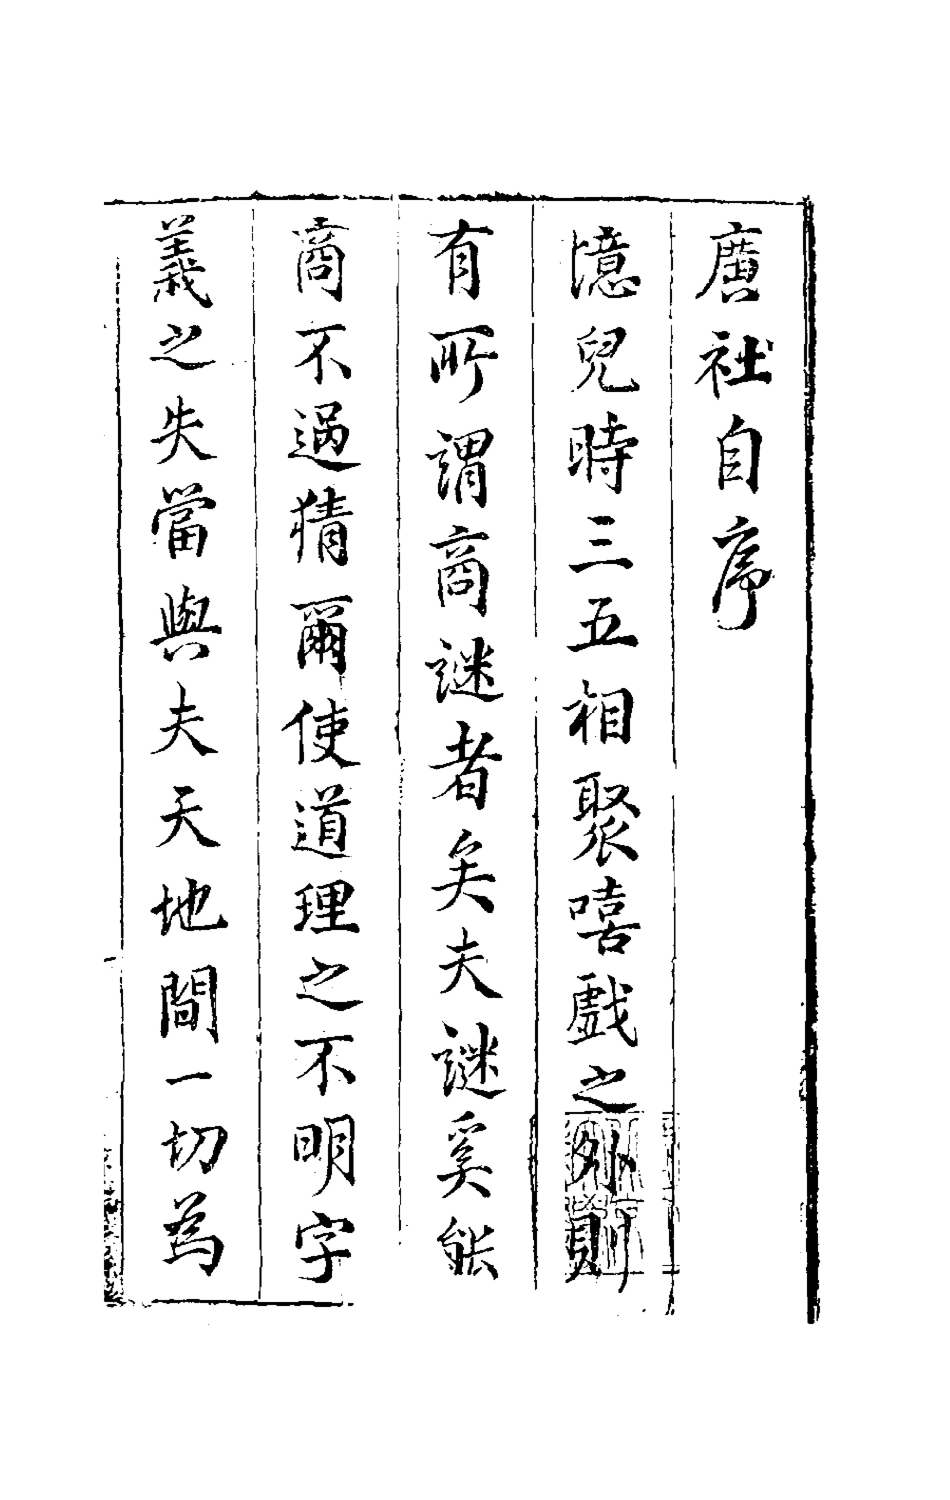 廣社自序
憶兒時三五相聚嘻戲之外則
有所謂商謎者矣夫謎奚能
商不過猜爾使道理之不明字
義之失當與夫天地間一切爲